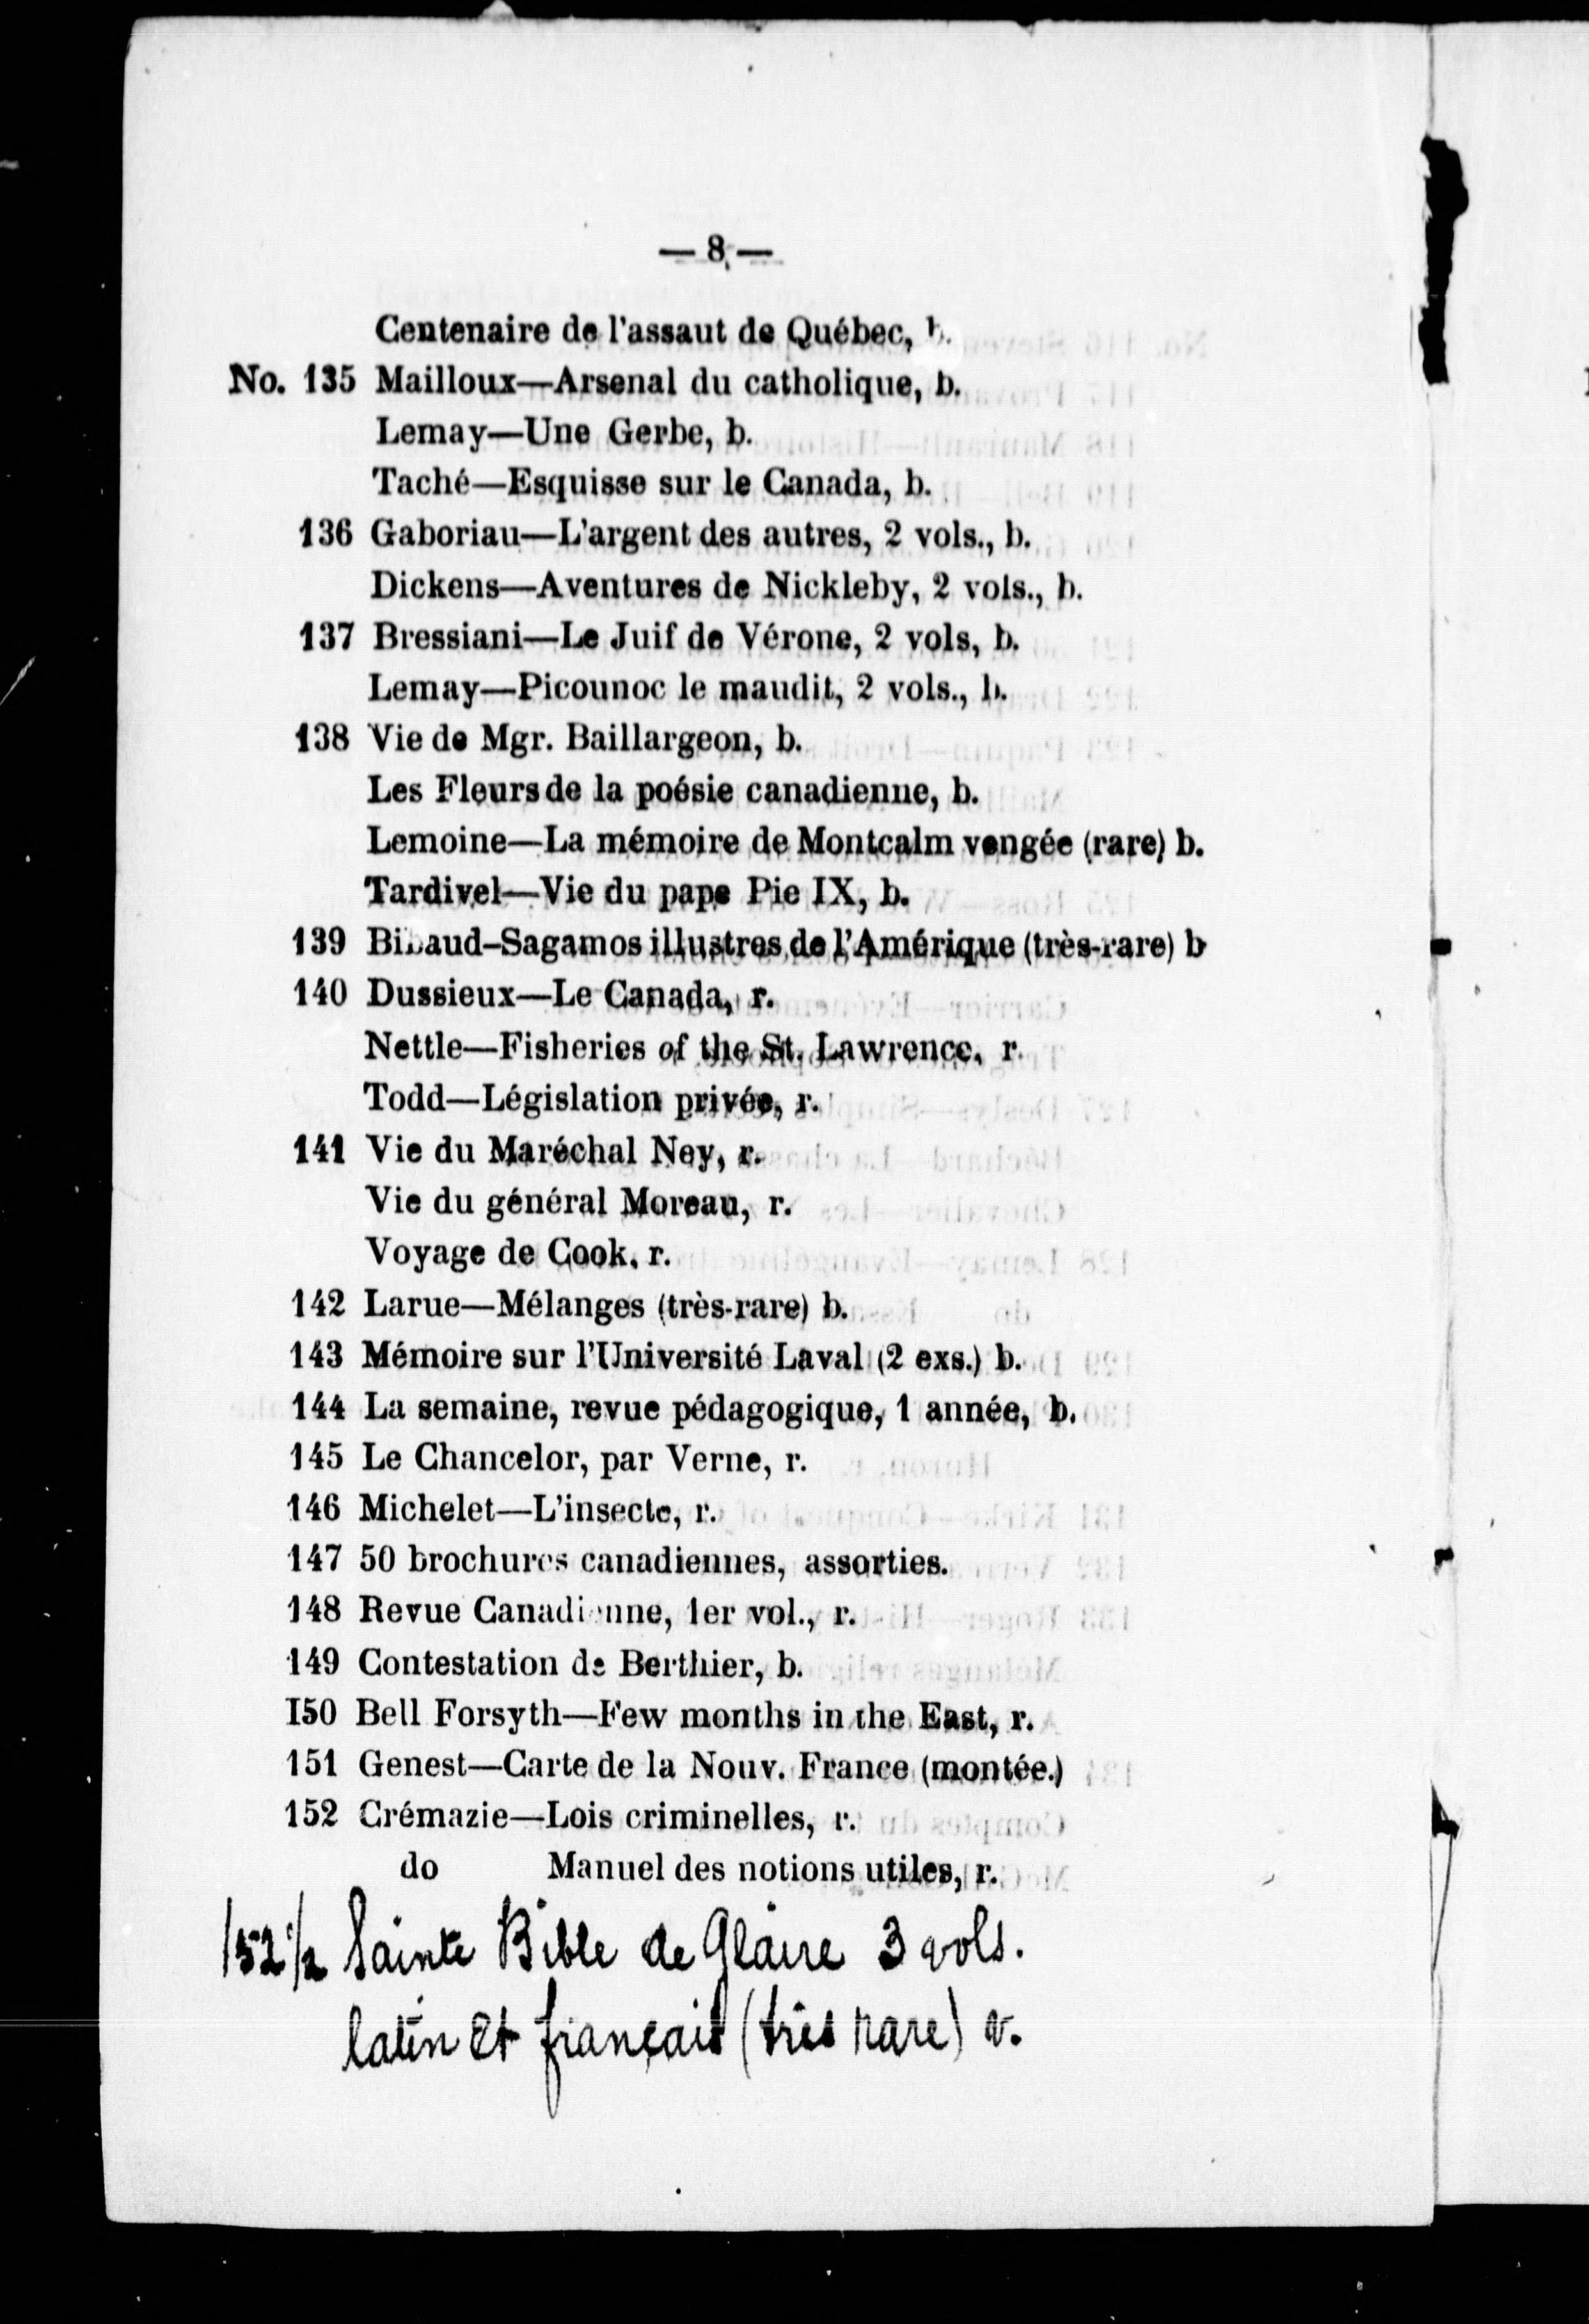 — 8 —
Centenaire de l'assaut de Québec, b.
No. 135 Mailloux—Arsenal du catholique, b.
Lemay—Une Gerbe, b.
Taché—Esquisse sur le Canada, b.
136 Gaboriau—L'argent des autres, 2 vols., b.
Dickens—Aventures de Nickleby, 2 vols., b.
137 Bressiani—Le Juif de Vérone, 2 vols, b.
Lemay—Picounoc le maudit, 2 vols., b.
138 Vie de Mgr. Baillargeon, b.
Les Fleurs de la poésie canadienne, b.
Lemoine—La mémoire de Montcalm vengée (rare) b.
Tardivel—Vie du pape Pie IX, b.
139 Bibaud-Sagamos illustres de l'Amérique (très-rare) b
140 Dussieux—Le Canada, r.
Nettle—Fisheries of the St. Lawrence, r.
Todd—Législation privée, r.
141 Vie du Maréchal Ney, r.
Vie du général Moreau, r.
Voyage de Cook, r.
142 Larue—Mélanges (très-rare) b.
143 Mémoire sur l'Université Laval (2 exs.) b.
144 La semaine, revue pédagogique, 1 année, b.
145 Le Chancelor, par Verne, r.
146 Michelet—L'insecte, r.
147 50 brochures canadiennes, assorties.
148 Revue Canadienne, 1er vol., r.
149 Contestation de Berthier, b.
150 Bell Forsyth—Few months in the East, r.
151 Genest—Carte de la Nouv. France (montée.)
152 Crémazie—Lois criminelles, r.
do Manuel des notions utiles, r.
152 1/2 Sainte Bible de Glaire 3 vols.
latin et français (très rare) r.